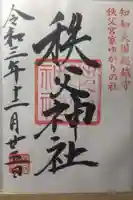 知知夫国総鎮守
秩父宮家ゆかりの社
秩父神社
令和三年十二月廿日